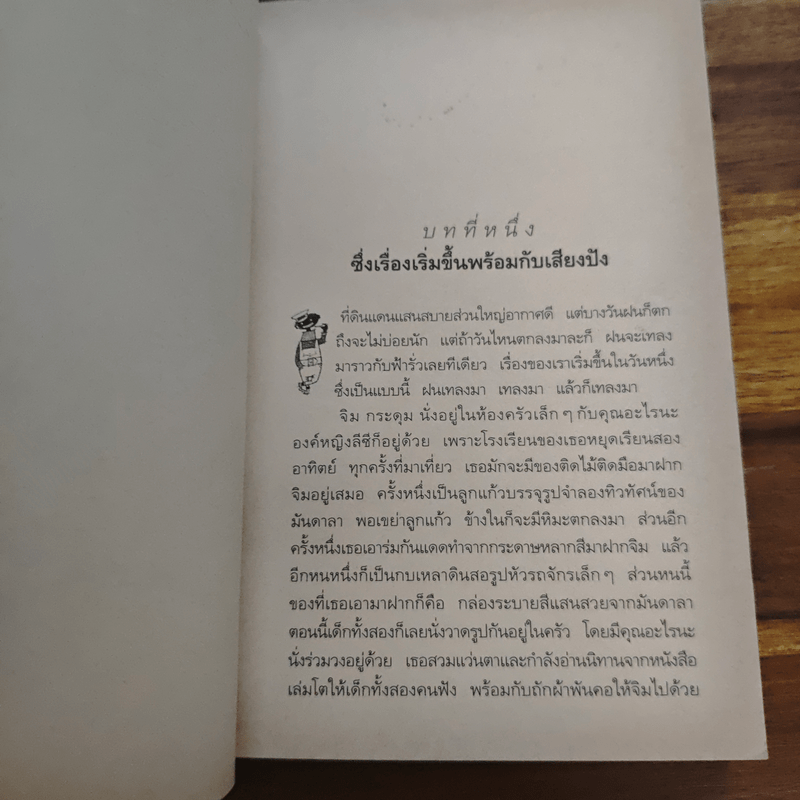 บทที่หนึ่ง
ซึ่งเรื่องเริ่มขึ้นพร้อมกับเสียงปัง
ที่ดินแดนแสนสบายส่วนใหญ่อากาศดี แต่บางวันฝนก็ตก
ถึงจะไม่บ่อยนัก แต่ถ้าวันไหนตกลงมาละก็ ฝนจะเทลง
มาราวกับฟ้ารั่วเลยทีเดียว เรื่องของเราเริ่มขึ้นในวันหนึ่ง
ซึ่งเป็นแบบนี้ ฝนเทลงมา เทลงมา แล้วก็เทลงมา
จิม กระดุม นั่งอยู่ในห้องครัวเล็ก ๆ กับคุณอะไรนะ
องค์หญิงลีซีก็อยู่ด้วย เพราะโรงเรียนของเธอหยุดเรียนสอง
อาทิตย์ ทุกครั้งที่มาเที่ยว เธอมักจะมีของติดไม้ติดมือมาฝาก
จิมอยู่เสมอ ครั้งหนึ่งเป็นลูกแก้วบรรจุรูปจำลองทิวทัศน์ของ
มันดาลา พอเขย่าลูกแก้ว ข้างในก็จะมีหิมะตกลงมา ส่วนอีก
ครั้งหนึ่งเธอเอาร่มกันแดดทำจากกระดาษหลากสีมาฝากจิม แล้ว
อีกหนหนึ่งก็เป็นกบเหลาดินสอรูปหัวรถจักรเล็ก ๆ ส่วนหนนี้
ของที่เธอเอามาฝากก็คือ กล่องระบายสีแสนสวยจากมันดาลา
ตอนนี้เด็กทั้งสองก็เลยนั่งวาดรูปกันอยู่ในครัว โดยมีคุณอะไรนะ
นั่งร่วมวงอยู่ด้วย เธอสวมแว่นตาและกำลังอ่านนิทานจากหนังสือ
เล่มโตให้เด็กทั้งสองคนฟัง พร้อมกับถักผ้าพันคอให้จิมไปด้วย